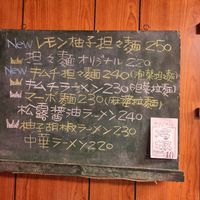 New レモン柚子担々麺 250
担々麺オリジナル 220
New キムチ担々麺 240
キムチラーメン 230
マーボ麺 230
松露醤油ラーメン 240
柚子胡椒ラーメン 230
中華ラーメン 220